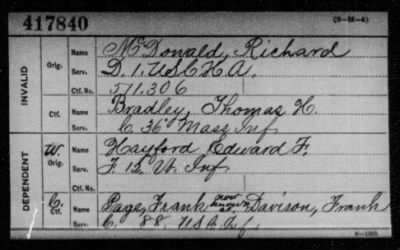 417840 (3-M-4)
INVALID Orig. Name McDonald, Richard
Serv. D. 1. U.S.C.H.A.
Ctf. No. 511.306
Ctf. Name Bradley, Thomas H.
Serv. C. 36" Mass Inf
DEPENDENT W. Orig. Name Hayford Edward F.
Serv. F 12 Vt Inf
C. Ctf. Name Page, Frank now known as Davison, Frank
Serv. C. 88